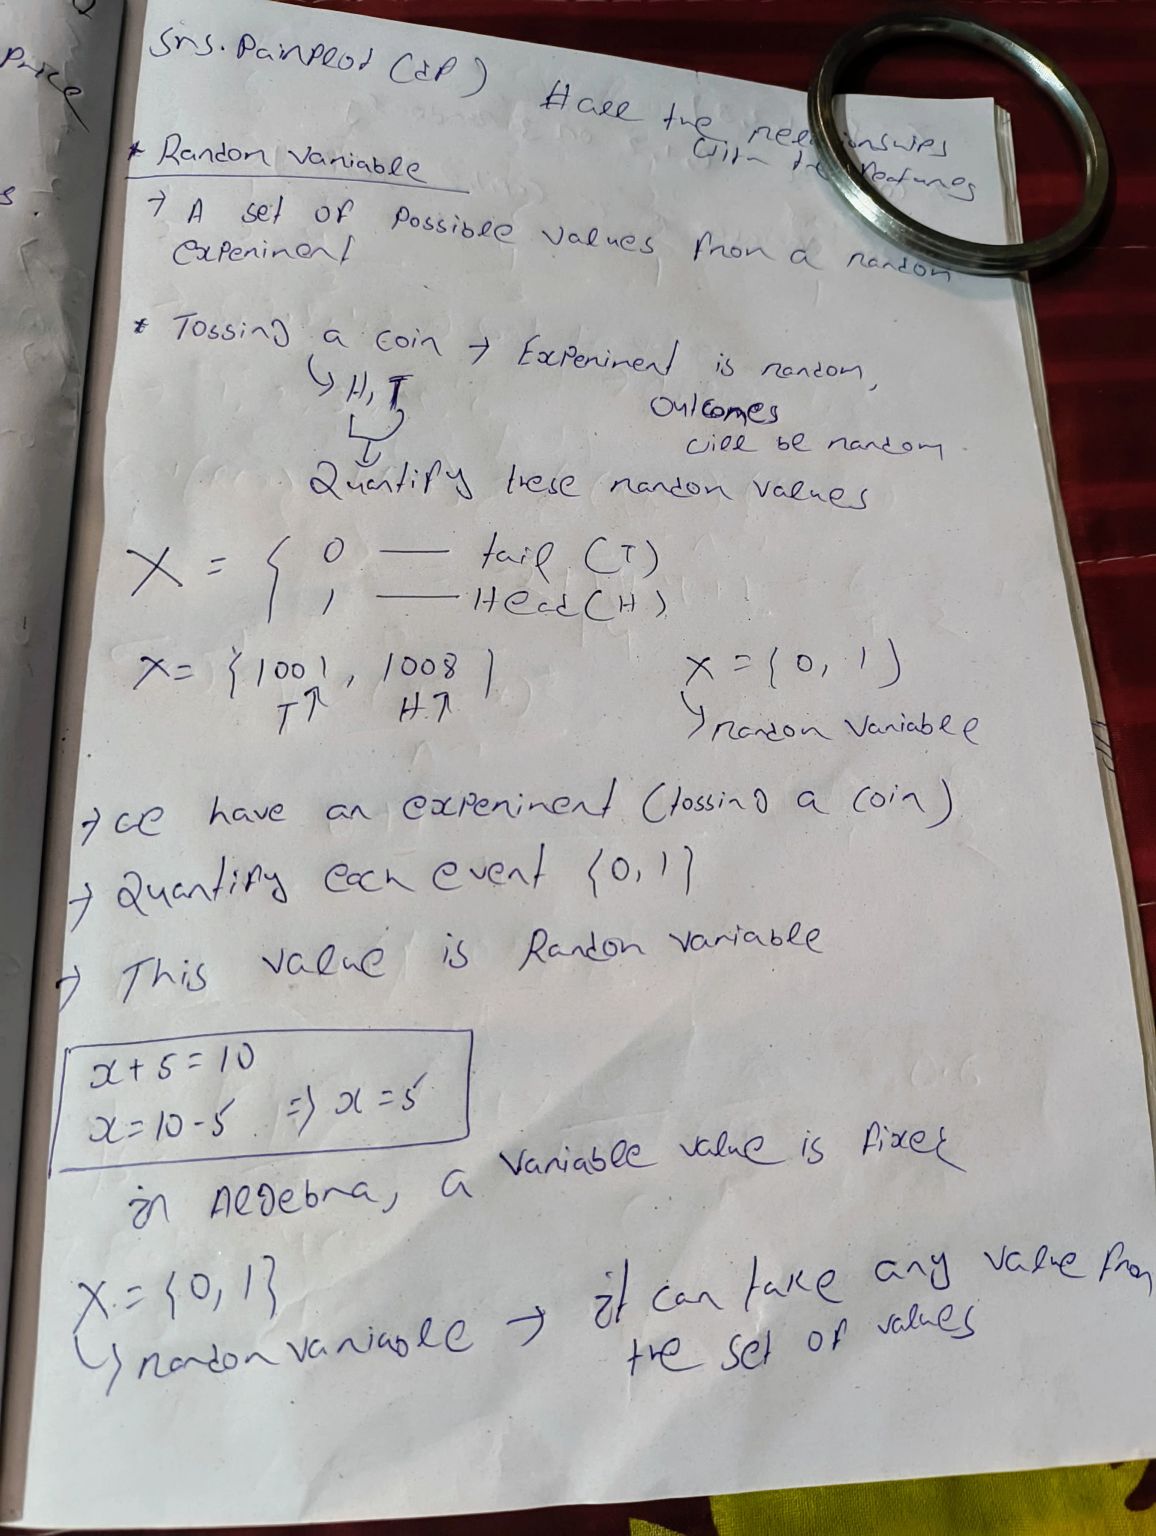 Price
s.
sns.Pairplot (df) # all the relationships
with the features
* Random Variable
→ A set of possible values from a random
experiment
* Tossing a coin → Experiment is random,
↳ H, T outcomes
will be random.
Quantify these random values
X = { 0 — tail (T)
1 — Head (H)
X = {1001, 1008} X = {0, 1}
T↑ H↑ ↳ random variable
→ we have an experiment (tossing a coin)
→ Quantify each event {0, 1}
→ This value is Random variable
x + 5 = 10
x = 10 - 5 ⇒ x = 5
in Algebra, a variable value is fixed
X = {0, 1}
↳ random variable → it can take any value from
the set of values